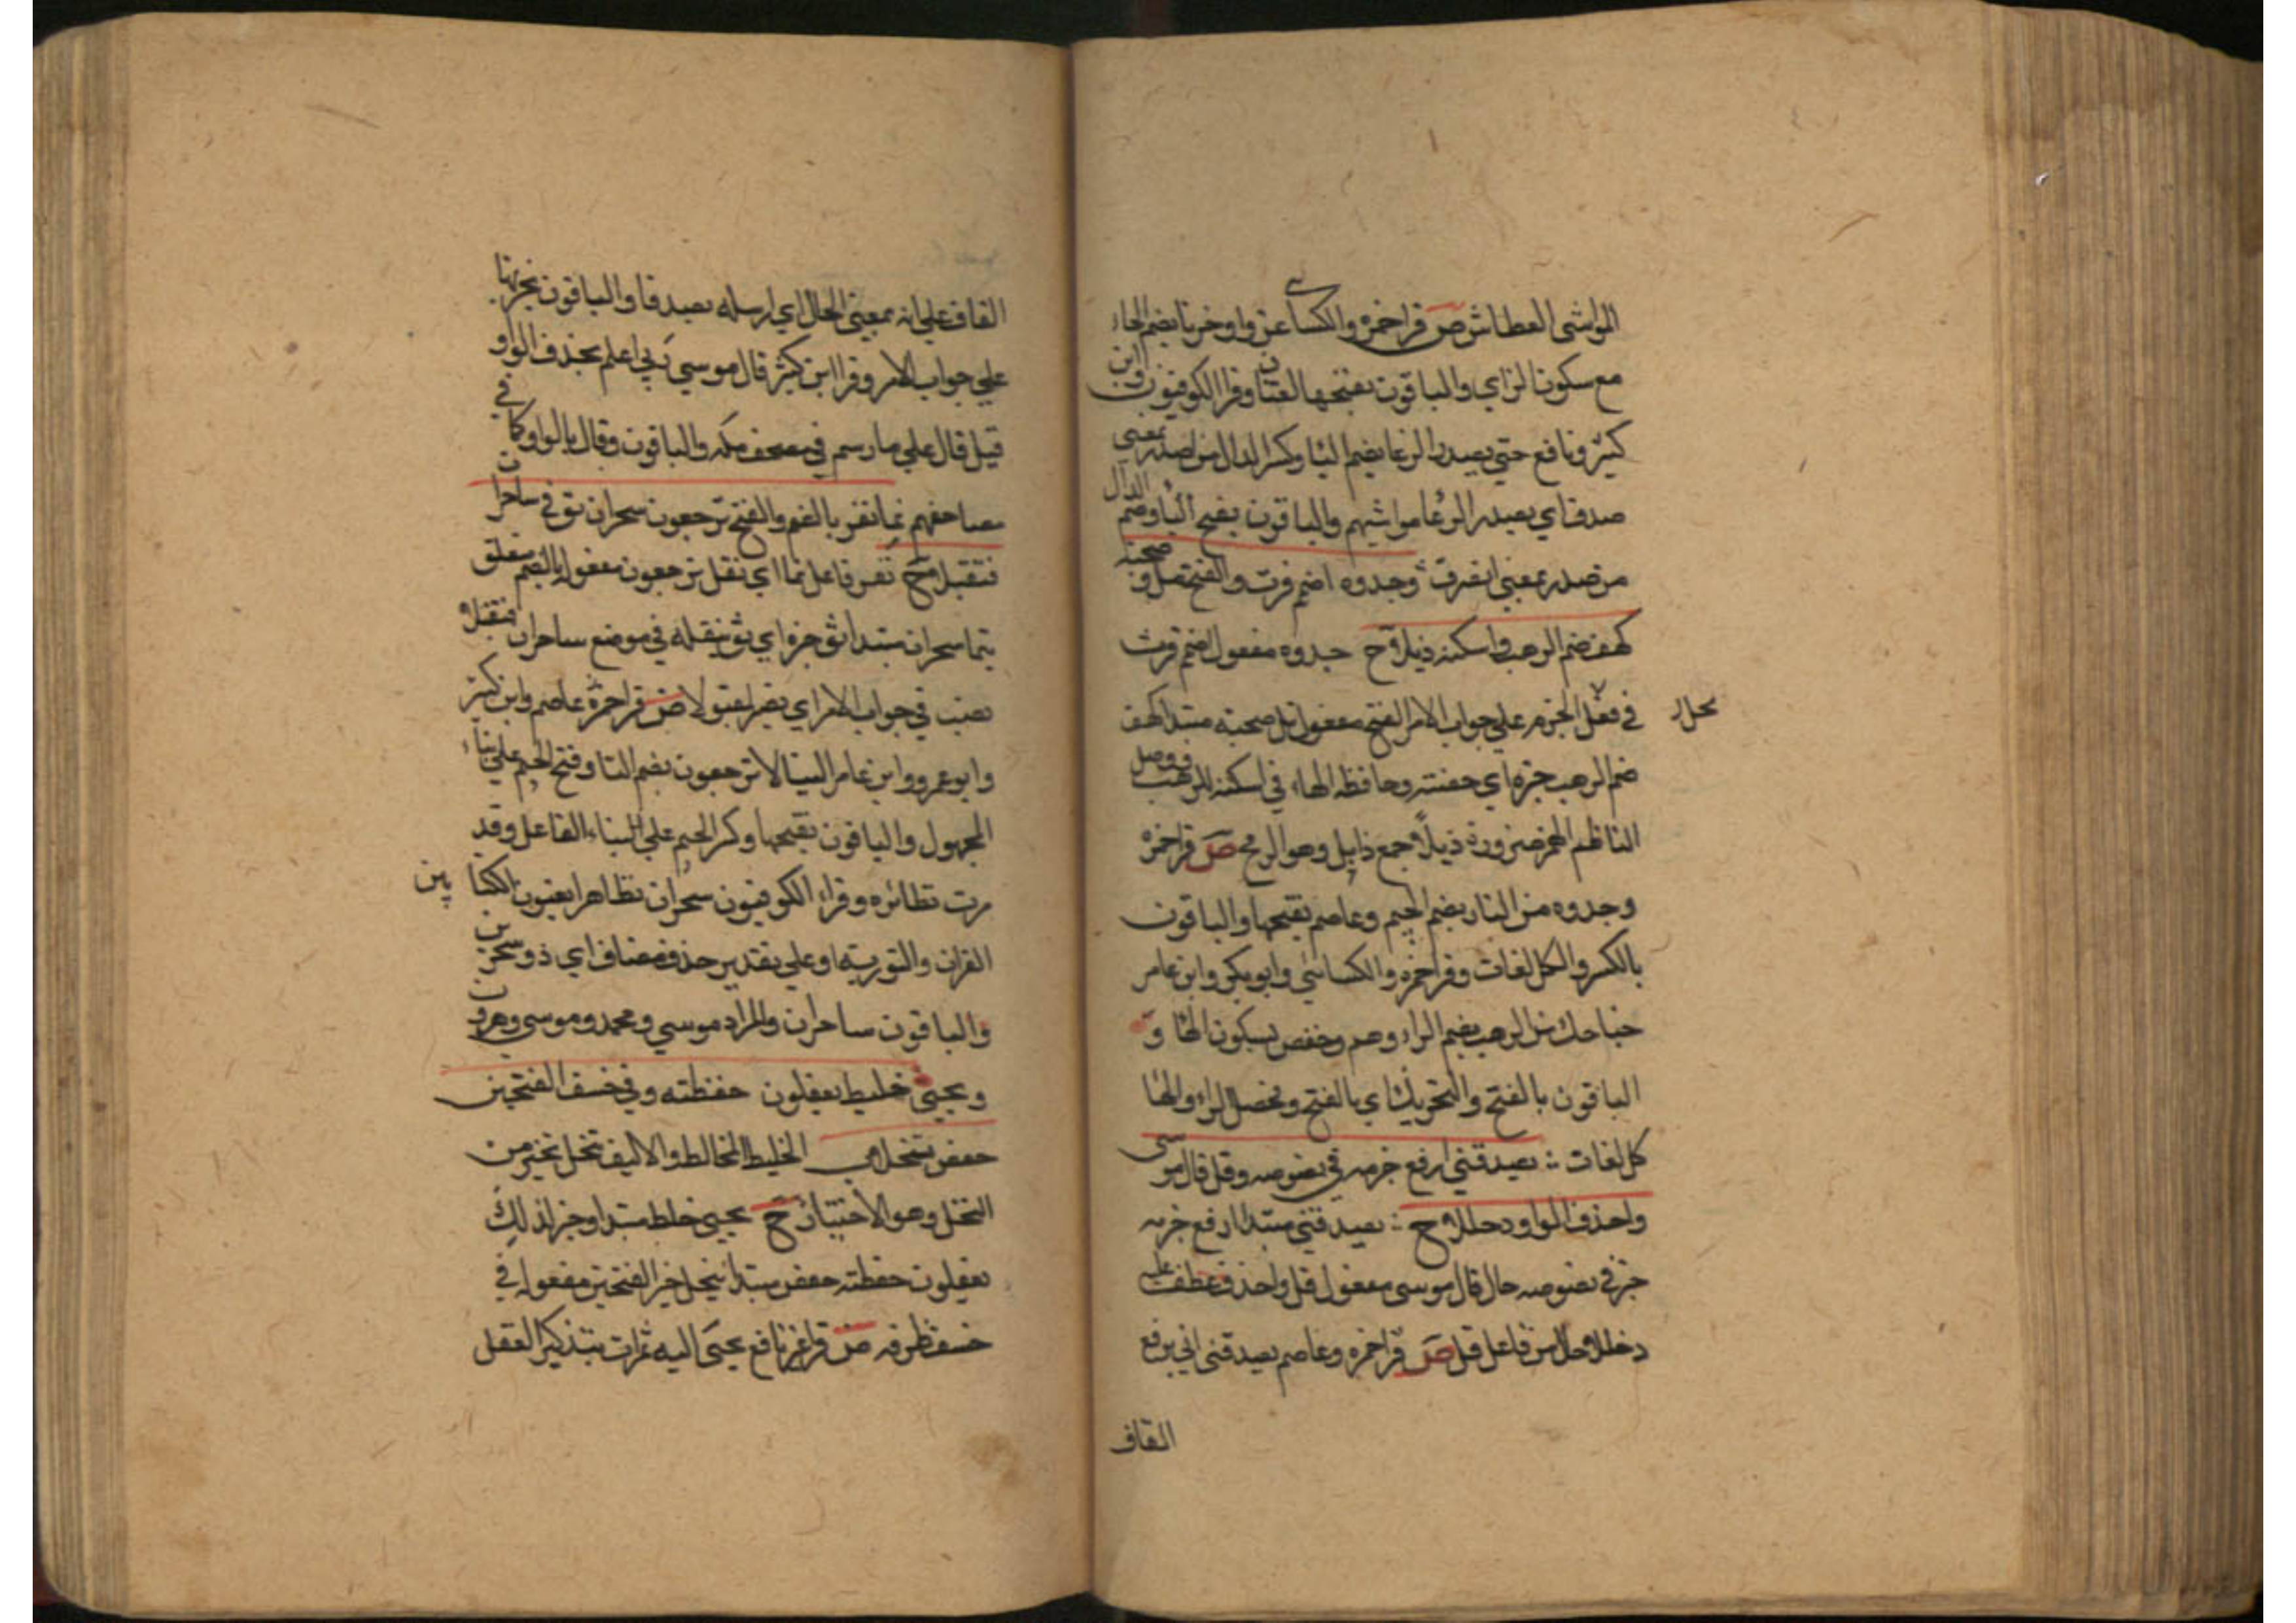 المواشي العطاش ص قرا حمزه والكسائي عدوا وحزنا بضم الحاء
مع سكون الزاي والباقون بفتحهما لغتان وقرا الكوفيون وابن
كثير ونافع حتي يصدر الرعا بضم اليا وكسر الدال من اصدر بمعني
صدق اي يصدر الرعا مواشيهم والباقون بفتح اليا وضم الدال
من صدر بمعني انصرف وجذوه اضمم فزت والفتح نل وصحبة
كهف ضم الرهب واسكنه ذبلا ح جذوه مفعول اضمم فزت
في فعل الجزم علي جواب الامر الفتح مفعول نل صحبته مبتدا كهف
ضم الرهب خبره اي حفنته وحافظه الهاء في اسكنه للرهب ووصل
الناظم الهمز ضرورة ذبلا جمع ذابل وهو الرمح ص قرا حمزه
وجذوه من النار بضم الجيم وعاصم بفتحها والباقون
بالكسر والكل لغات وقرا حمزه والكسائي وابوبكر وابن عامر
جناحك من الرهب بضم الراء وهم وحفص بسكون الها و
الباقون بالفتح والتحريك اي بالفتح وتحصل الراء والها
كل لغات يصدقني ارفع جزمه في نصوصه وقل قال موسى
واحذف الواو دخللا ح يصدقني مبتدا ارفع جزمه
خبر في نصوصه حال قال موسى مفعول قل واحذف عطف عليه
دخللا حال من فاعل قل ص قرا حمزه وعاصم يصدقني اني برفع
القاف
القاف علي انه بمعني الحال اي ارسله يصدقا والباقون بجزمها
علي جواب الامر وقرا ابن كثير قال موسي ربي اعلم بحذف الواو
قبل قال علي ما رسم في مصحف مكه والباقون وقال بالواو كما في
مصاحفهم نما نفر بالضم والفتح يرجعون سحران ثق في ساحران
فتقبلا ح نفر فاعل نما اي نقل يرجعون مفعوله بالضم متعلق
بنما سحران مبتدا ثق خبره اي ثق بنقله في موضع ساحران فتقبلا
نصب في جواب الامر اي مقبولا ص قرا حمزه عاصم وابن كثير
وابو عمرو وابن عامر الينا لا يرجعون بضم اليا وفتح الجيم علي بناء
المجهول والباقون بفتحها وكسر الجيم علي البناء الفاعل وقد
مرت نظائره وقراء الكوفيون سحران تظاهرا يعنون الكتابين
القران والتورية او علي تقدير حذف مضاف اي ذو سحرين
والباقون ساحران والمراد موسي ومحمد و موسى وهرون
ويجبي خليط يعقلون حفظته وفي خسف الفتحين
حفص تنخلا ح الخليط المخالط والاليف تنخل تخير من
التنخل وهو الاختيار ح يجبي خلط مبتدا وخبر لذلك
يعقلون حفظته حفص مبتدا تنخل خبر الفتحين مفعوله في
خسف ظرفه ص قرا غير نافع يجبى اليه ثمرات بتذكير الفعل